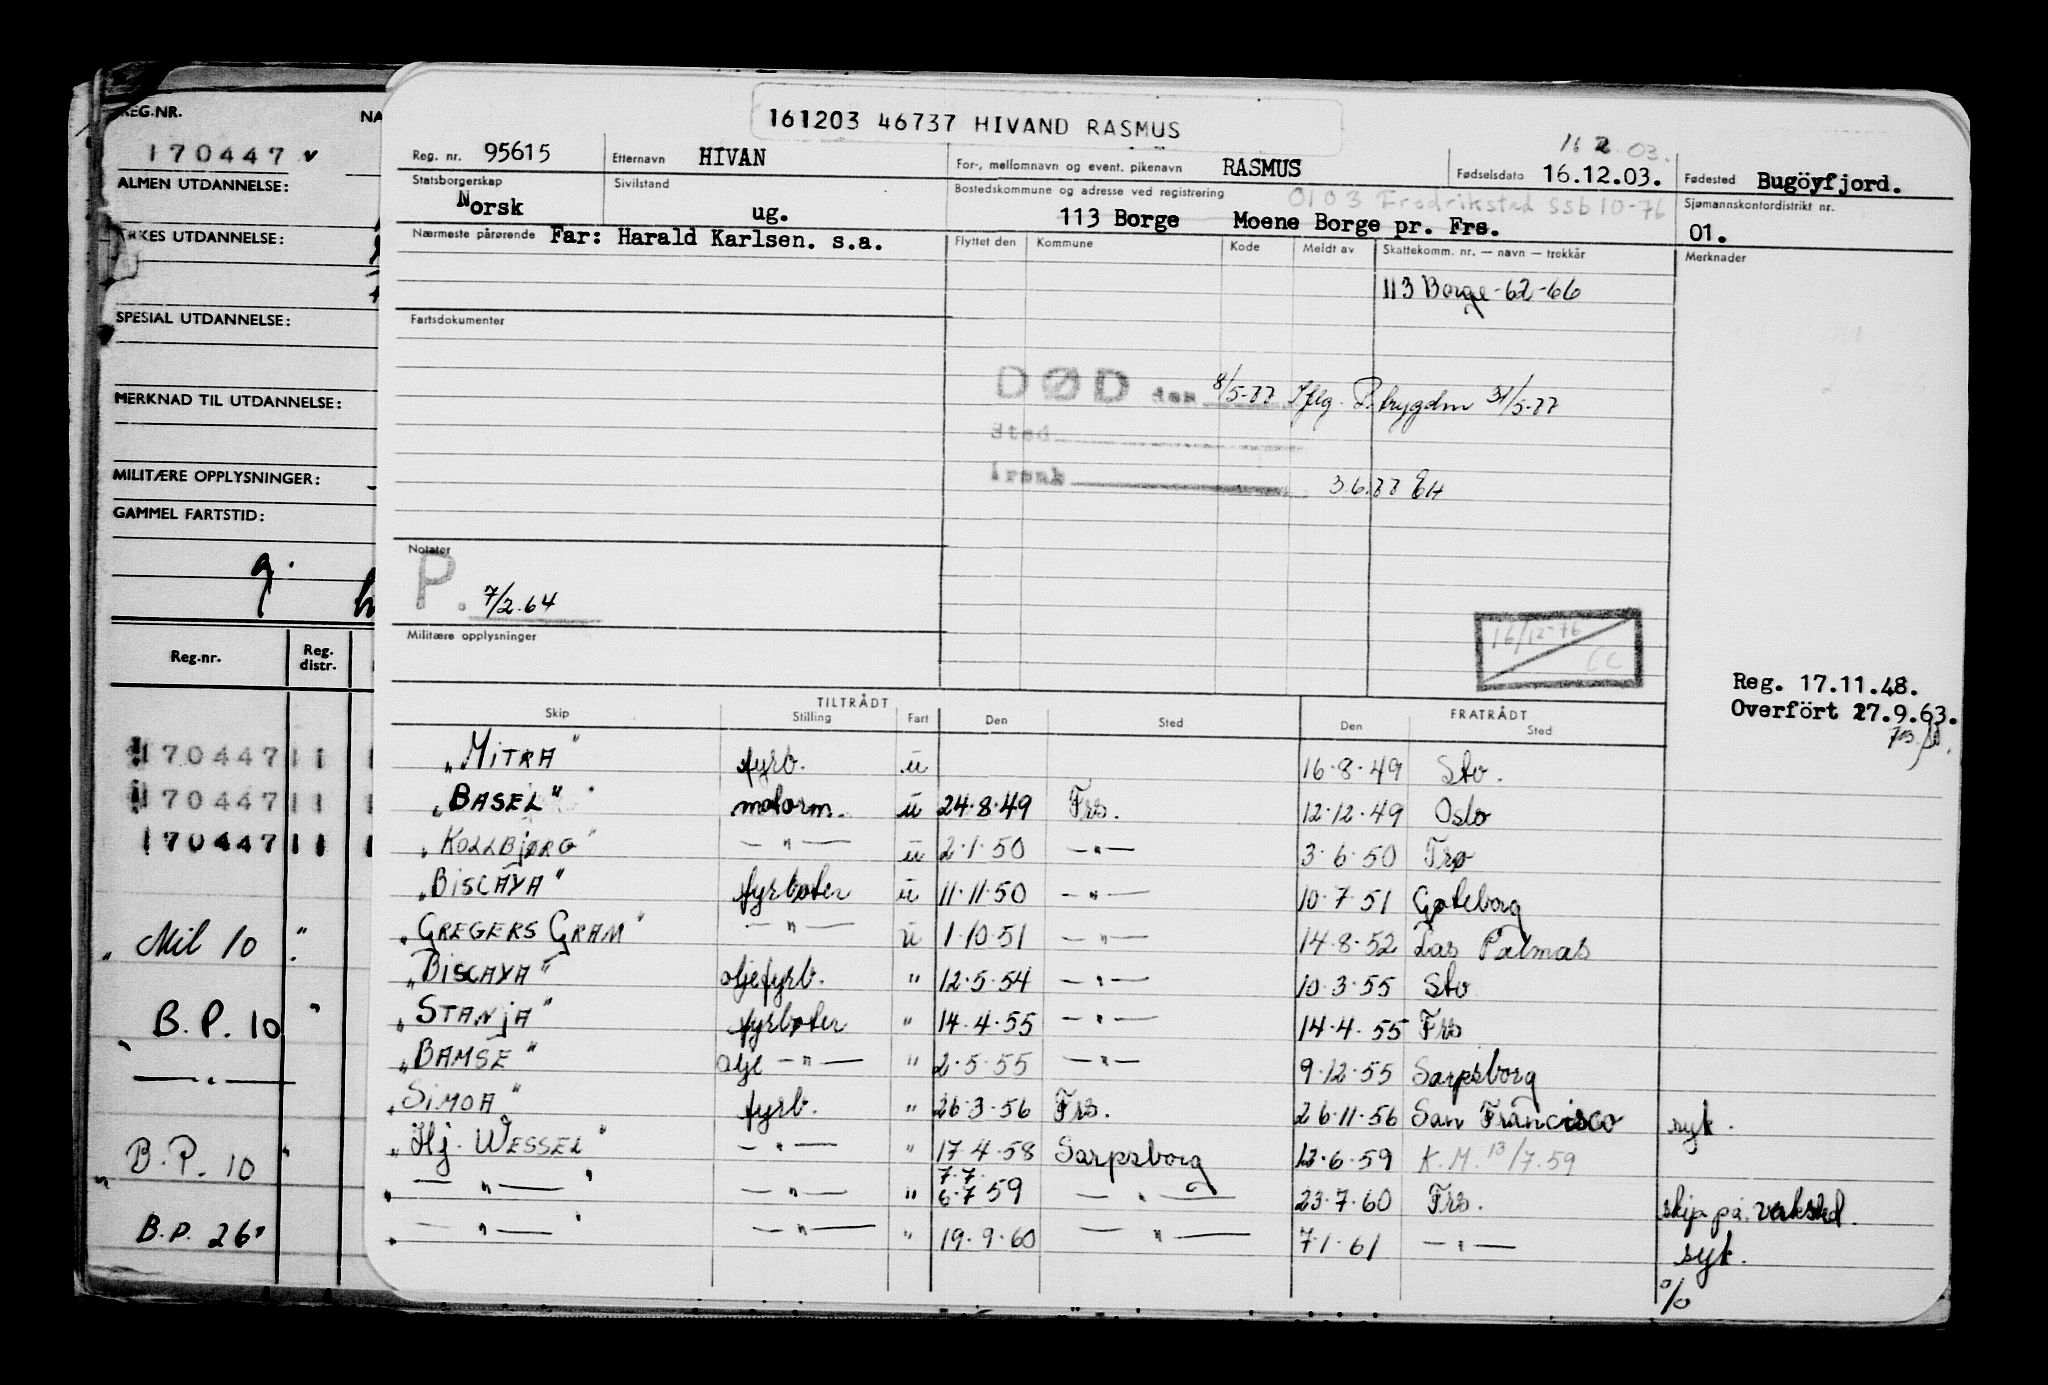 REG.NR.
NA
170447
ALMEN UTDANNELSE:
UTDANNELSE:
SPESIAL UTDANNELSE:
MERKNAD TIL UTDANNELSE:
MILITÆRE OPPLYSNINGER:
GAMMEL FARTSTID:
g.
Reg.nr. Reg. distr.
170447 11
170447 11
170447 11
„ Mil 10 "
B.P. 10 "
— " —
B.P. 10 "
B.P. 26"
161203 46737 HIVAND RASMUS
Reg. nr. 95615 Etternavn HIVAN For-, mellomnavn og event. pikenavn RASMUS Fødselsdato 16.12.03. Fødested Bugöyfjord.
Statsborgerskap Norsk Sivilstand ug. Bostedskommune og adresse ved registrering 0103 Fredrikstad SSB 10-76
113 Borge Moene Borge pr. Frs. Sjømannskontordistrikt nr. 01.
Nærmeste pårørende Far: Harald Karlsen. s.a. Flyttet den Kommune Kode Meldt av Skattekomm. nr. — navn — trekkår Merknader
113 Borge -62-66
Fartsdokumenter
DØD den 8/5-77 Iflg. P. trygdm 31/5-77
Sted
3.6.77 EH
Notater
P. 7/2.64
16/12-76
CC
Militære opplysninger
Reg. 17.11.48.
Overfört 27.9.63.
TILTRÅDT FRATRÅDT
Skip Stilling Fart Den Sted Den Sted
„MITRA" fyrb. u 16-8-49 Sto.
„BASEL" motorm. u 24-8-49 Frs. 12-12-49 Oslo
„KOLLBJØRG" — " — u 2-1-50 — " — 3-6-50
„BISCAYA" fyrbøter u 11-11-50 — " — 10-7-51 Gøteborg
„GREGERS GRAM" — " — u 1-10-51 — " — 14-8-52 Las Palmas
„BISCAYA" oljefyrb. " 12-5-54 — " — 10-3-55 Sto
„STANJA" fyrbøter " 14-4-55 — " — 14-4-55 Frs
„BAMSE" olje — " — " 2-5-55 — " — 9-12-55 Sarpsborg
„SIMOA" fyrb. " 26-3-56 Frs. 26-11-56 San Francisco syk.
„Hj. WESSEL" — " — " 17-4-58 Sarpsborg 13-6-59 K.M. 13/7.59
„ — " — " — " — " 7.7. 6-7 59 — " — 23-7-60 Frs. skip på verksted.
„ — " — " — " — " 19-9-60 — " — 7-1-61 — " — syk.
%